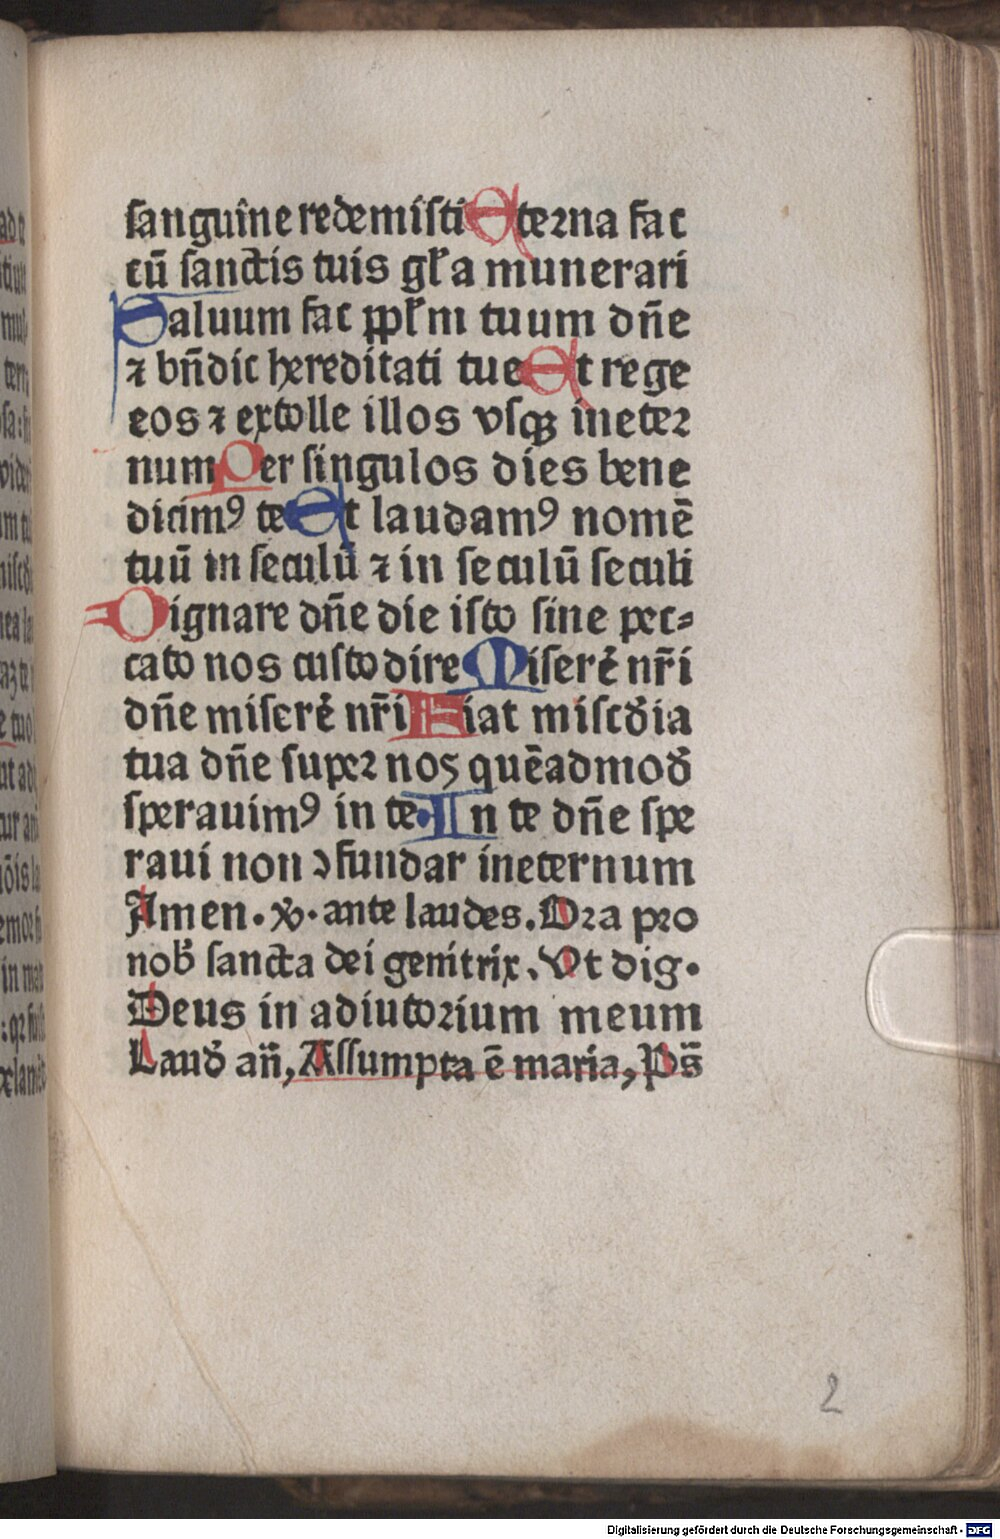 sanguine redemisti Eterna fac
cū sanctis tuis gl̃a munerari
Saluum fac ppl̃m tuum dñe
⁊ bñdic hereditati tue Et rege
eos ⁊ extolle illos vsqꝫ ineter
num Per singulos dies bene
dicimꝰ te Et laudamꝰ nomē
tuū in seculū ⁊ in seculū seculi
Dignare dñe die isto sine pec-
cato nos custodire Miserē nr̄i
dñe miserē nr̄i Fiat misc̄dia
tua dñe super nos quēadmod̄
sperauimꝰ in te. In te dñe spe
raui non ꝯfundar ineternum
Amen. ℣. ante laudes. Ora pro
nob̄ sancta dei genitrix. Vt dig.
Deus in adiutorium meum
Laud̄ añ, Assumpta ē maria, Ps̄
2
Digitalisierung gefördert durch die Deutsche Forschungsgemeinschaft - DFG